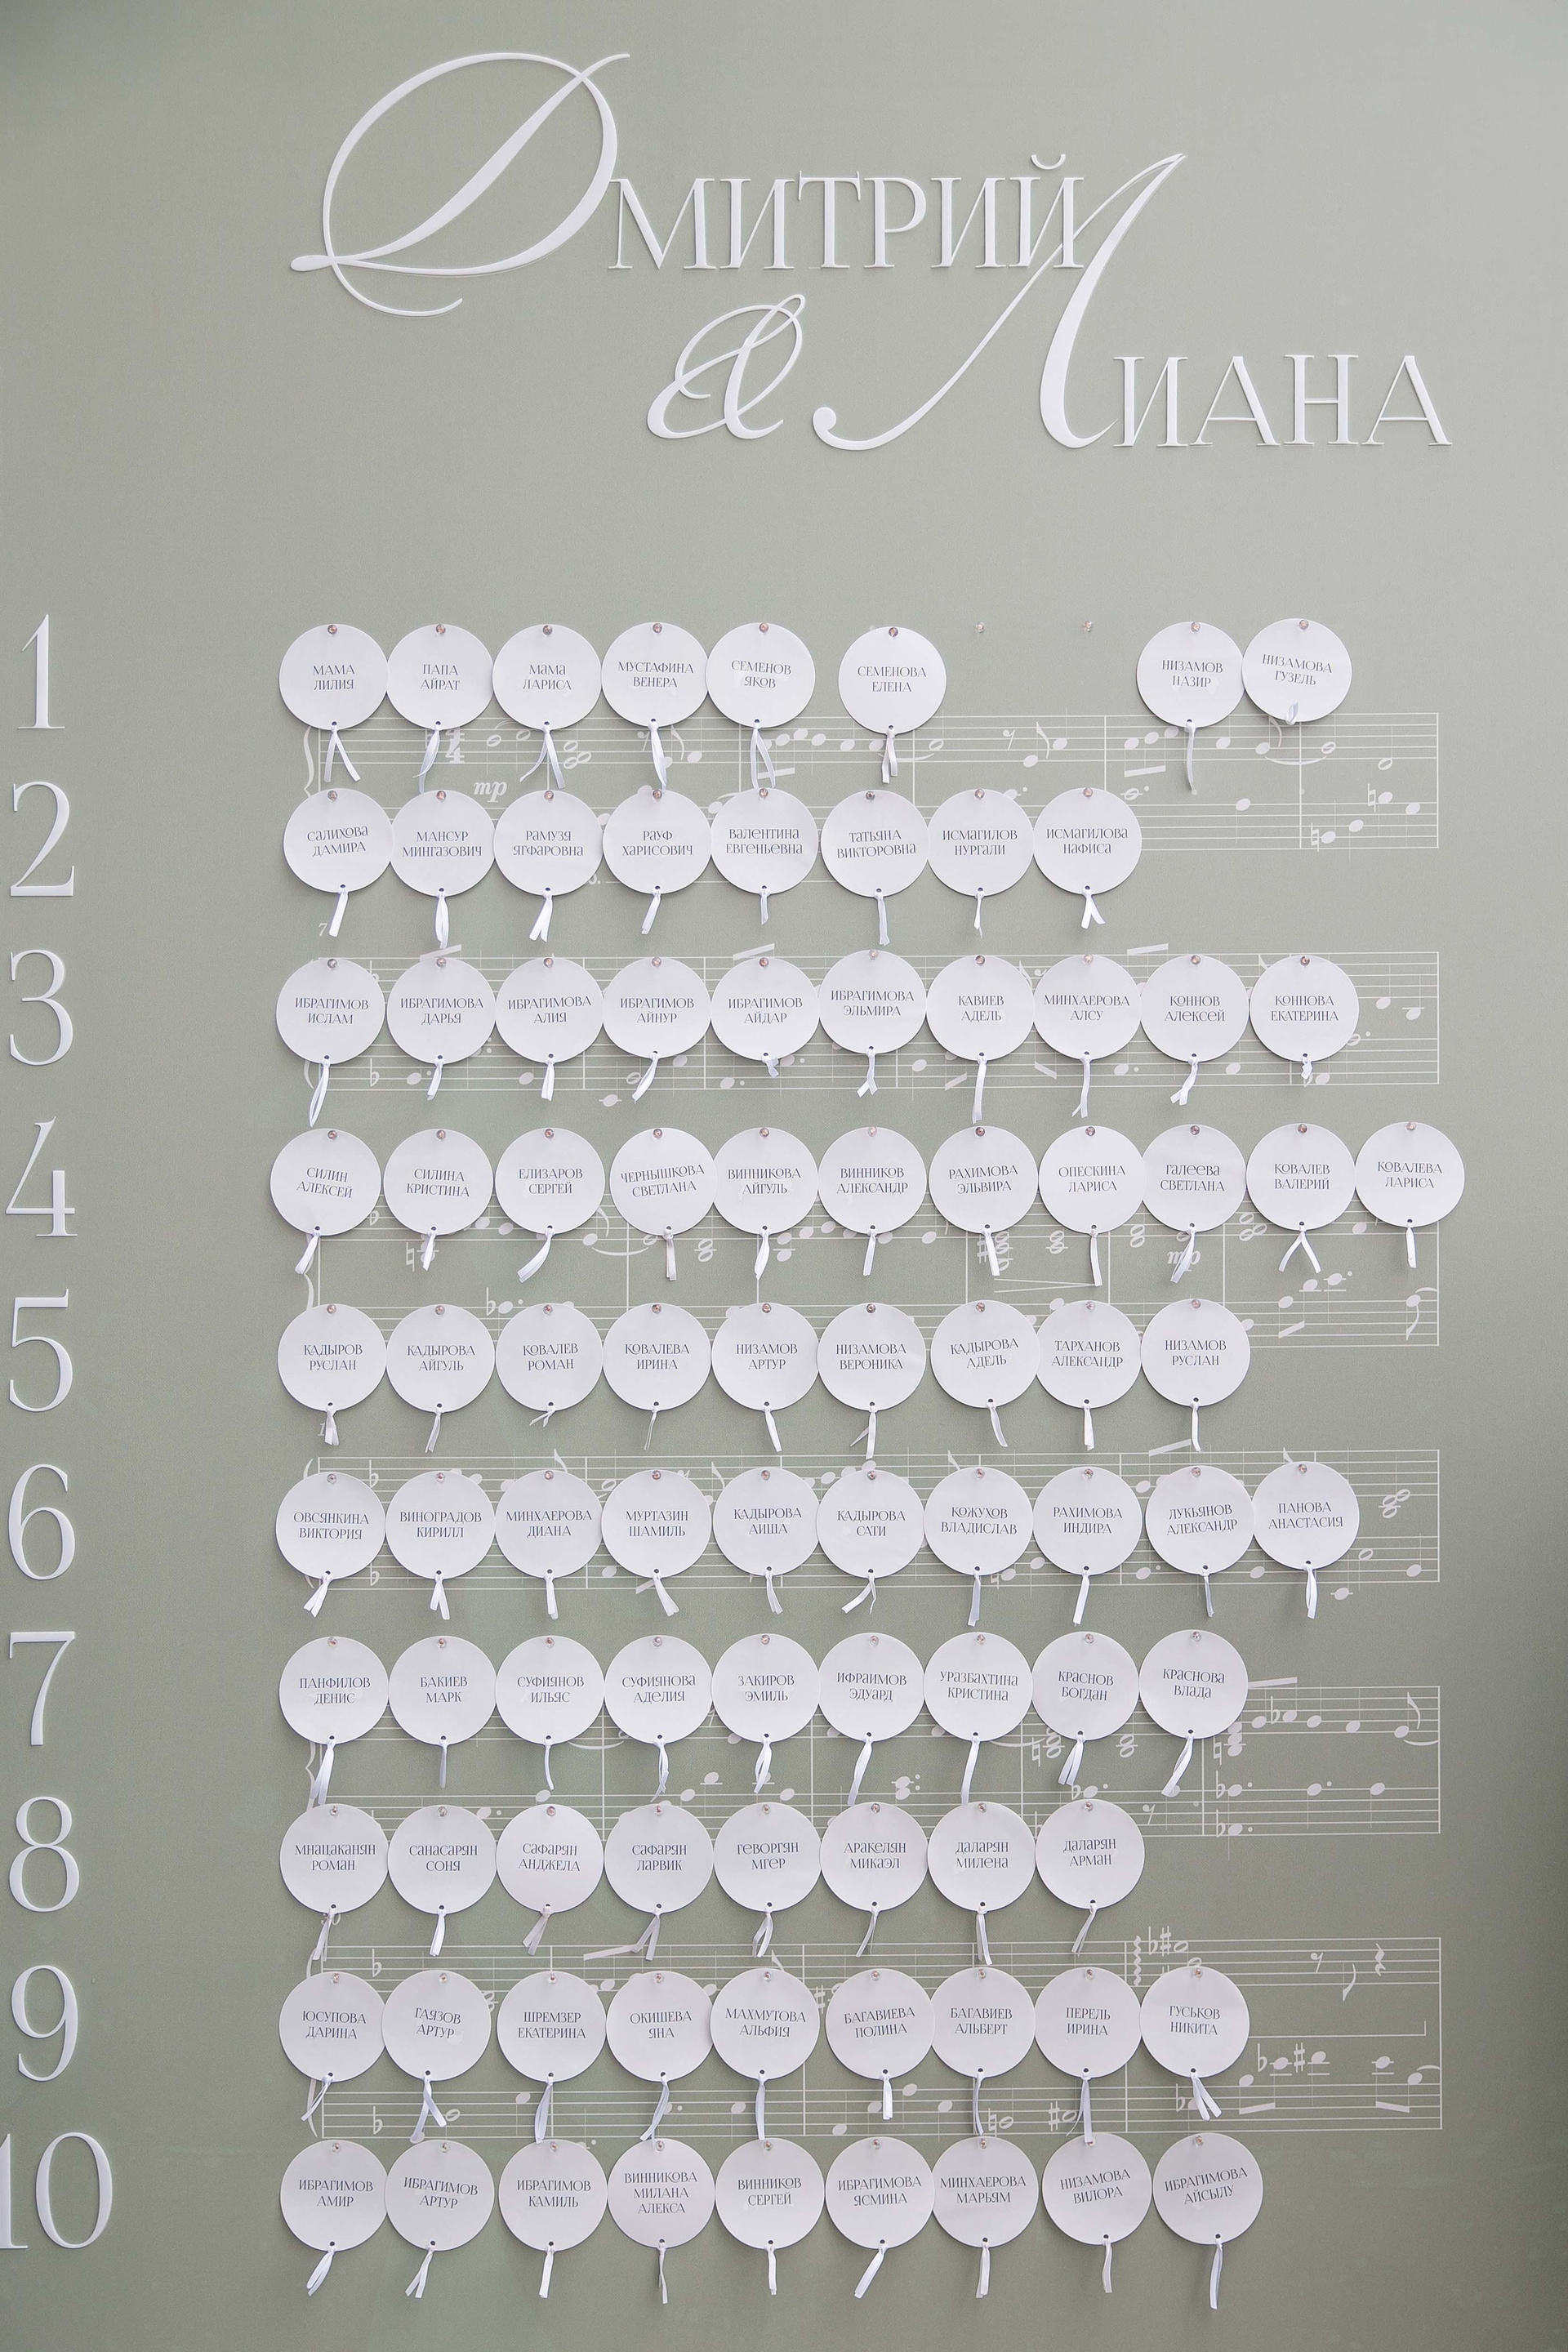 Дмитрий
&
Лиана
1
МАМА ЛИЛИЯ
ПАПА АЙРАТ
МАМА ЛАРИСА
МУСТАФИНА ВЕНЕРА
СЕМЕНОВ ЯКОВ
СЕМЕНОВА ЕЛЕНА
НИЗАМОВ НАЗИР
НИЗАМОВА ГУЗЕЛЬ
mp
2
САЛИХОВА ДАМИРА
МАНСУР МИНГАЗОВИЧ
РАМУЗЯ ЯГФАРОВНА
РАУФ ХАРИСОВИЧ
ВАЛЕНТИНА ЕВГЕНЬЕВНА
ТАТЬЯНА ВИКТОРОВНА
ИСМАГИЛОВ НУРГАЛИ
ИСМАГИЛОВА НАФИСА
7
3
ИБРАГИМОВ ИСЛАМ
ИБРАГИМОВА ДАРЬЯ
ИБРАГИМОВА АЛИЯ
ИБРАГИМОВ АЙНУР
ИБРАГИМОВ АЙДАР
ИБРАГИМОВА ЭЛЬМИРА
КАВИЕВ АДЕЛЬ
МИНХАЕРОВА АЛСУ
КОННОВ АЛЕКСЕЙ
КОННОВА ЕКАТЕРИНА
4
СИЛИН АЛЕКСЕЙ
СИЛИНА КРИСТИНА
ЕЛИЗАРОВ СЕРГЕЙ
ЧЕРНЫШКОВА СВЕТЛАНА
ВИННИКОВА АЙГУЛЬ
ВИННИКОВ АЛЕКСАНДР
РАХИМОВА ЭЛЬВИРА
ОПЕСКИНА ЛАРИСА
ГАЛЕЕВА СВЕТЛАНА
КОВАЛЕВ ВАЛЕРИЙ
КОВАЛЕВА ЛАРИСА
mp
5
КАДЫРОВ РУСЛАН
КАДЫРОВА АЙГУЛЬ
КОВАЛЕВ РОМАН
КОВАЛЕВА ИРИНА
НИЗАМОВ АРТУР
НИЗАМОВА ВЕРОНИКА
КАДЫРОВА АДЕЛЬ
ТАРХАНОВ АЛЕКСАНДР
НИЗАМОВ РУСЛАН
6
ОВСЯНКИНА ВИКТОРИЯ
ВИНОГРАДОВ КИРИЛЛ
МИНХАЕРОВА ДИАНА
МУРТАЗИН ШАМИЛЬ
КАДЫРОВА АИША
КАДЫРОВА САТИ
КОЖУХОВ ВЛАДИСЛАВ
РАХИМОВА ИНДИРА
ЛУКЬЯНОВ АЛЕКСАНДР
ПАНОВА АНАСТАСИЯ
7
ПАНФИЛОВ ДЕНИС
БАКИЕВ МАРК
СУФИЯНОВ ИЛЬЯС
СУФИЯНОВА АДЕЛИЯ
ЗАКИРОВ ЭМИЛЬ
ИФРАИМОВ ЭДУАРД
УРАЗБАХТИНА КРИСТИНА
КРАСНОВ БОГДАН
КРАСНОВА ВЛАДА
8
МНАЦАКАНЯН РОМАН
САНАСАРЯН СОНЯ
САФАРЯН АНДЖЕЛА
САФАРЯН ЛАРВИК
ГЕВОРГЯН МГЕР
АРАКЕЛЯН МИКАЭЛ
ДАЛАРЯН МИЛЕНА
ДАЛАРЯН АРМАН
9
ЮСУПОВА ДАРИНА
ГАЯЗОВ АРТУР
ШРЕМЗЕР ЕКАТЕРИНА
ОКИШЕВА ЯНА
МАХМУТОВА АЛЬФИЯ
БАГАВИЕВА ПОЛИНА
БАГАВИЕВ АЛЬБЕРТ
ПЕРЕЛЬ ИРИНА
ГУСЬКОВ НИКИТА
10
ИБРАГИМОВ АМИР
ИБРАГИМОВ АРТУР
ИБРАГИМОВ КАМИЛЬ
ВИННИКОВА МИЛАНА АЛЕКСА
ВИННИКОВ СЕРГЕЙ
ИБРАГИМОВА ЯСМИНА
МИНХАЕРОВА МАРЬЯМ
НИЗАМОВА ВИЛОРА
ИБРАГИМОВА АЙСЫЛУ